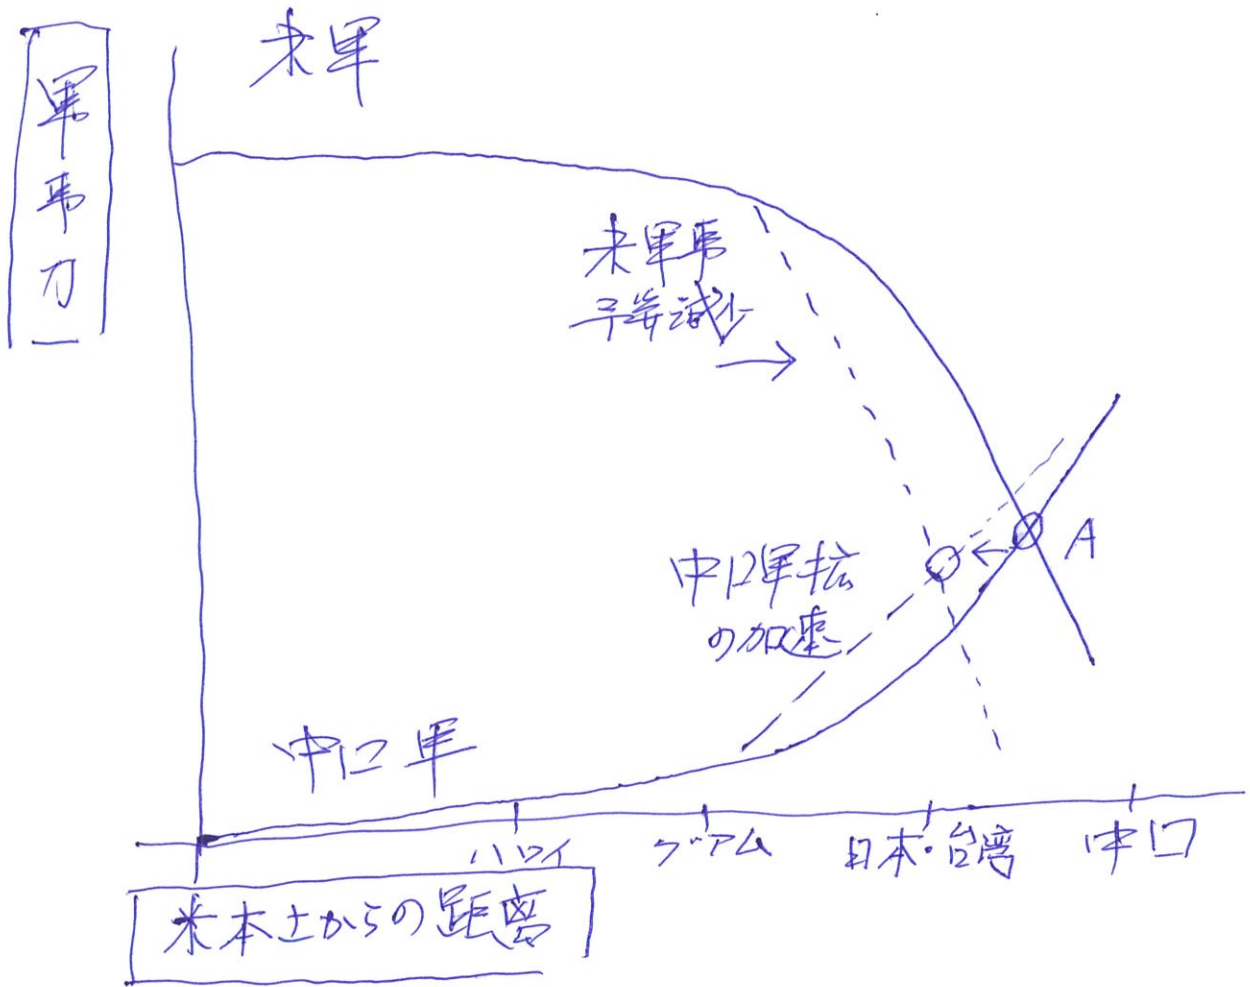 軍事力
米軍
米軍事
予算減少
中国軍拡
の加速
A
中国軍
ハワイ
グアム
日本・台湾
中国
米本土からの距離